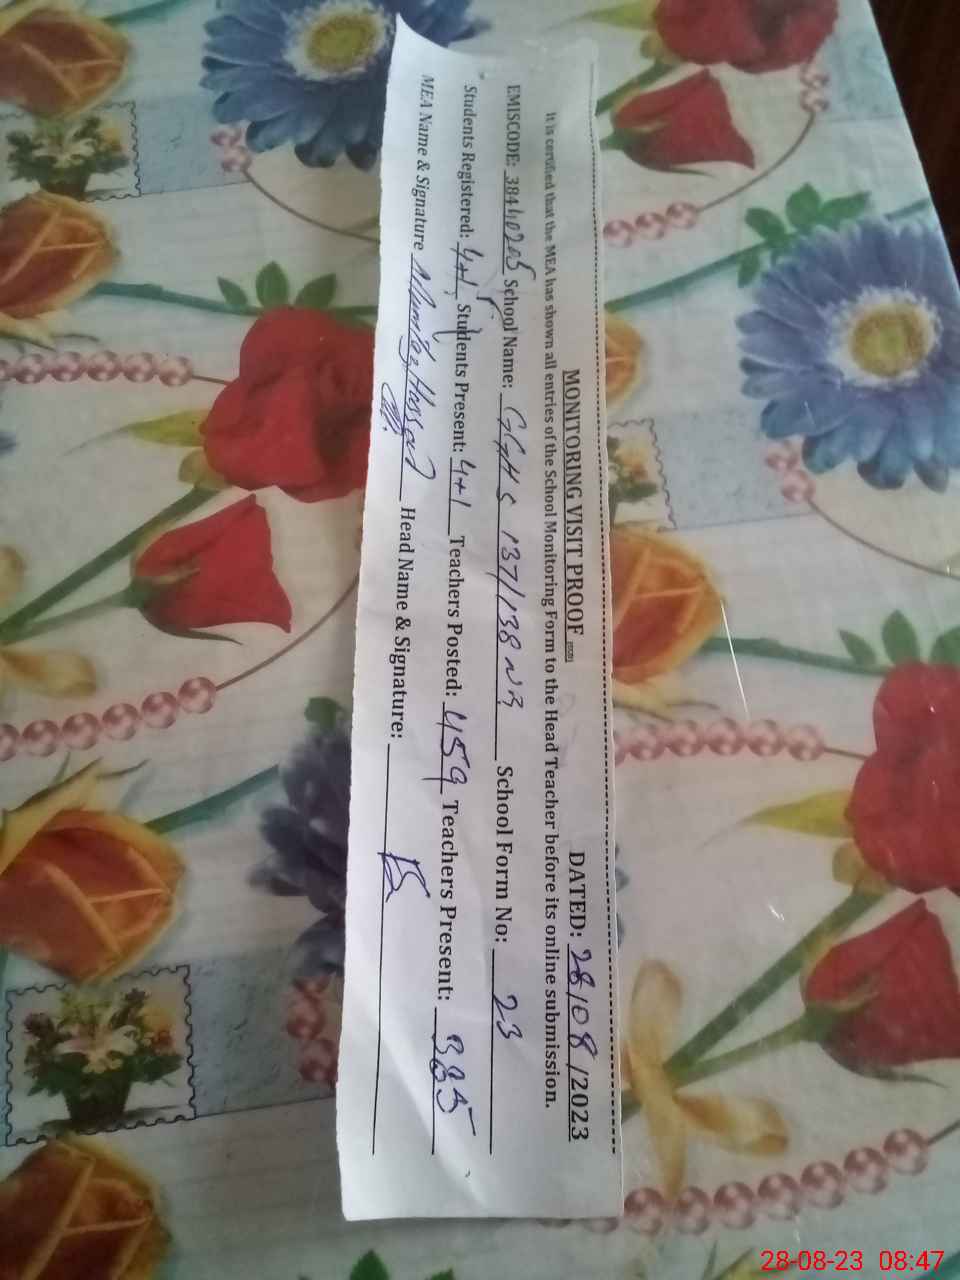 MONITORING VISIT PROOF
DATED: 28/08/2023
It is certified that the MEA has shown all entries of the School Monitoring Form to the Head Teacher before its online submission.
EMISCODE: 38440205 School Name: GGHS 137/138 NB School Form No: 23
Students Registered: 4+1 Students Present: 4+1 Teachers Posted: 459 Teachers Present: 385
MEA Name & Signature Head Name & Signature:
28-08-23 08:47